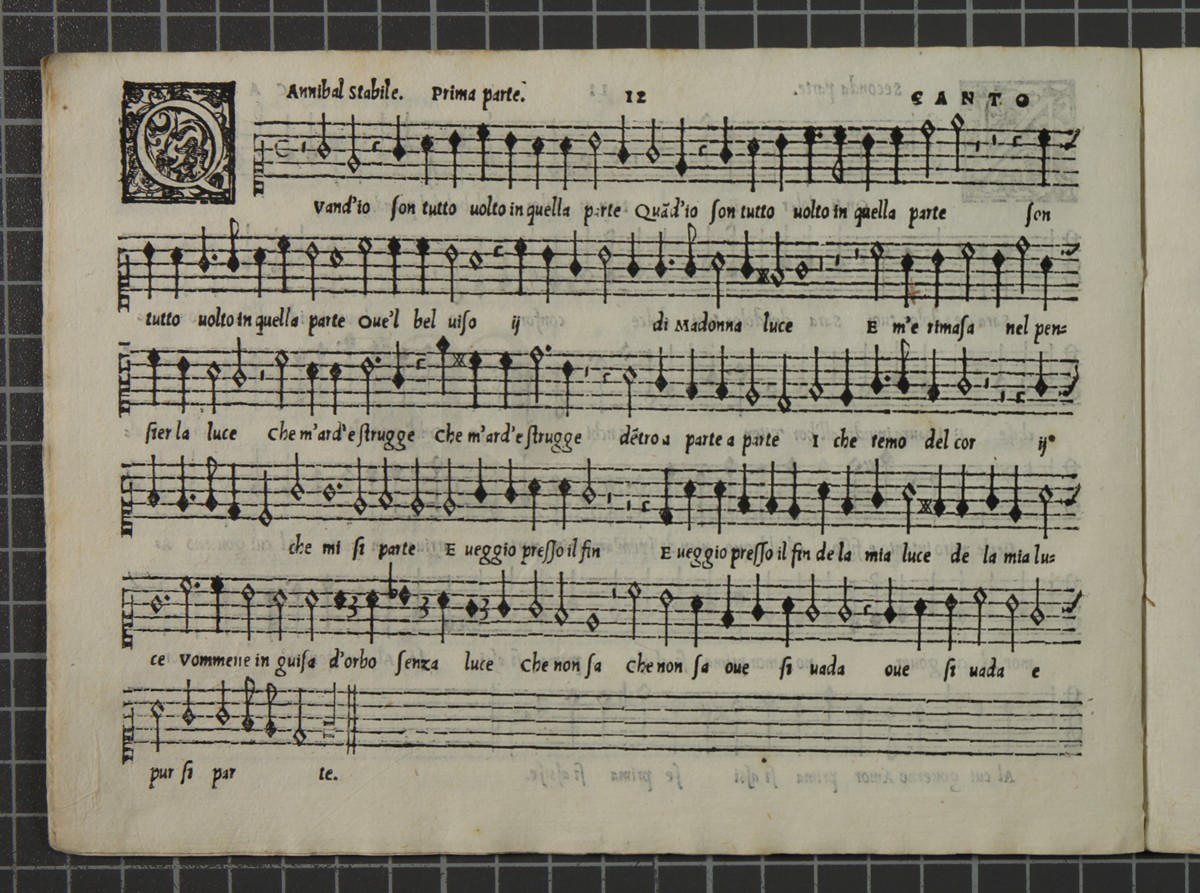 Annibal Stabile. Prima parte. 12 CANTO
QVand'io son tutto uolto in quella parte Quãd'io son tutto uolto in quella parte son
tutto uolto in quella parte Oue'l bel uiso ij di Madonna luce E m'e rimasa nel pen=
sier la luce Che m'ard'e strugge Che m'ard'e strugge dẽtro a parte a parte I che temo del cor ij
che mi si parte E ueggio presso il fin E ueggio presso il fin de la mia luce de la mia lu=
ce Vommene in guisa d'orbo senza luce Che non sa Che non sa oue si uada oue si uada e
pur si par te.